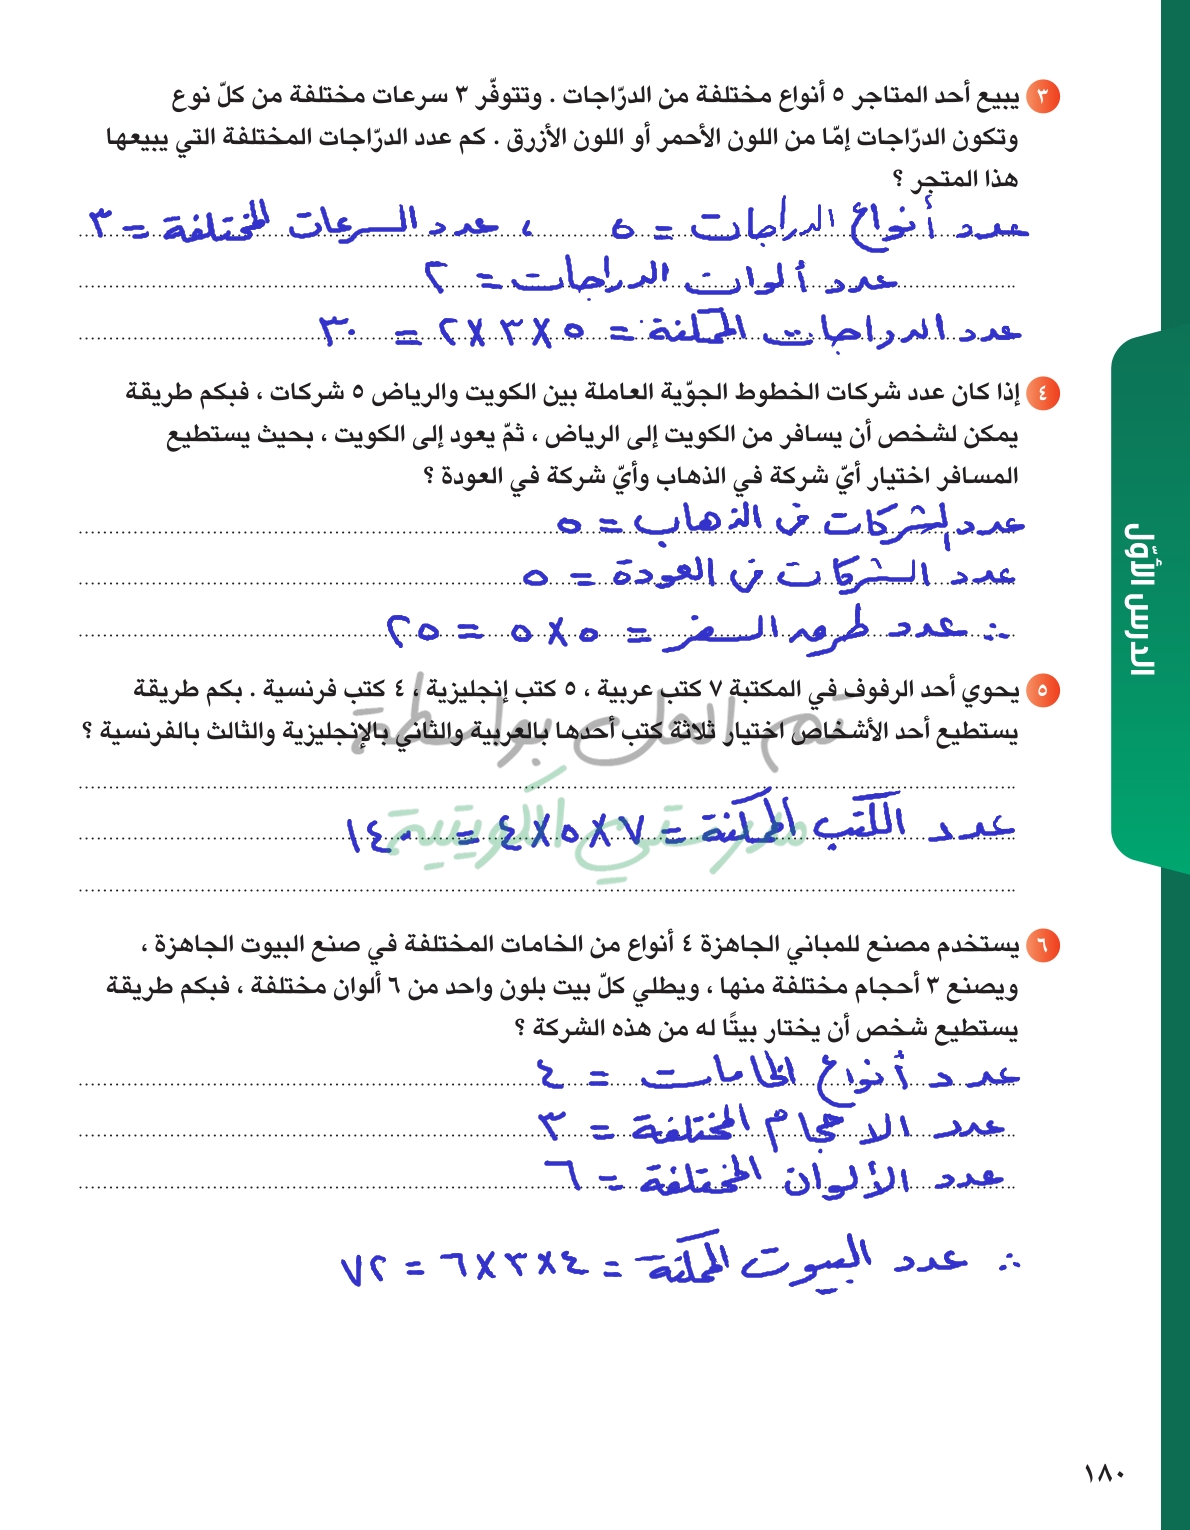 ٣ يبيع أحد المتاجر ٥ أنواع مختلفة من الدرّاجات . وتتوفّر ٣ سرعات مختلفة من كلّ نوع
وتكون الدرّاجات إمّا من اللون الأحمر أو اللون الأزرق . كم عدد الدرّاجات المختلفة التي يبيعها
هذا المتجر ؟
عدد أنواع الدراجات = ٥ ، عدد السرعات المختلفة = ٣
عدد ألوان الدراجات = ٢
عدد الدراجات الممكنة = ٥ × ٣ × ٢ = ٣٠
٤ إذا كان عدد شركات الخطوط الجوّية العاملة بين الكويت والرياض ٥ شركات ، فبكم طريقة
يمكن لشخص أن يسافر من الكويت إلى الرياض ، ثمّ يعود إلى الكويت ، بحيث يستطيع
المسافر اختيار أيّ شركة في الذهاب وأيّ شركة في العودة ؟
عدد الشركات في الذهاب = ٥
عدد الشركات في العودة = ٥
∴ عدد طرق السفر = ٥ × ٥ = ٢٥
٥ يحوي أحد الرفوف في المكتبة ٧ كتب عربية ، ٥ كتب إنجليزية ، ٤ كتب فرنسية . بكم طريقة
يستطيع أحد الأشخاص اختيار ثلاثة كتب أحدها بالعربية والثاني بالإنجليزية والثالث بالفرنسية ؟
تم الحل بواسطة
مدرستي الكويتية
عدد الكتب الممكنة = ٧ × ٥ × ٤ = ١٤٠
٦ يستخدم مصنع للمباني الجاهزة ٤ أنواع من الخامات المختلفة في صنع البيوت الجاهزة ،
ويصنع ٣ أحجام مختلفة منها ، ويطلي كلّ بيت بلون واحد من ٦ ألوان مختلفة ، فبكم طريقة
يستطيع شخص أن يختار بيتًا له من هذه الشركة ؟
عدد أنواع الخامات = ٤
عدد الاحجام المختلفة = ٣
عدد الألوان المختلفة = ٦
∴ عدد البيوت الممكنة = ٤ × ٣ × ٦ = ٧٢
الدرس الأوّل
١٨٠